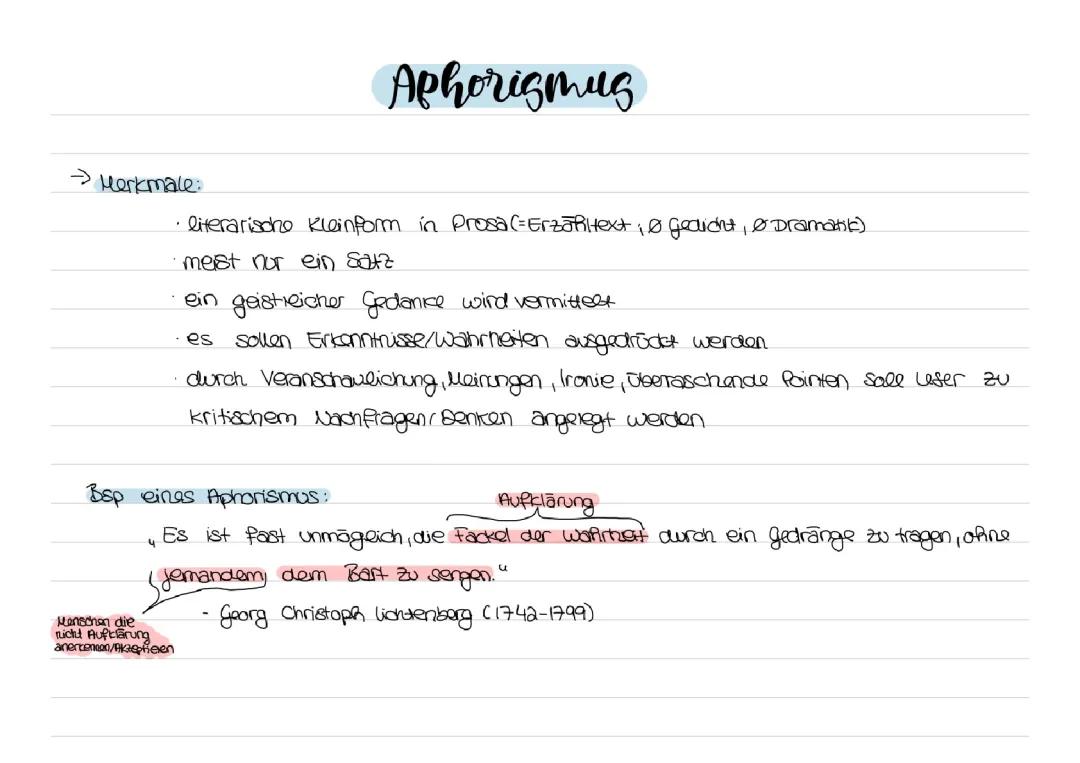 Aphorismus
→ Merkmale:
· literarische Kleinform in Prosa (=Erzähltext, ∅ Gedicht, ∅ Dramatik)
· meist nur ein Satz
· ein geistreicher Gedanke wird vermittelt
· es sollen Erkenntnisse/Wahrheiten ausgedrückt werden
· durch Veranschaulichung, Meinungen, Ironie, überaschende Pointen soll Leser zu
kritischem Nachfragen/Denken angeregt werden
Bsp eines Aphorismus:
Aufklärung
„Es ist fast unmögleich, die Fackel der Wahrheit durch ein Gedränge zu tragen, ohne
jemandem dem Bart zu sengen."
- Georg Christoph Lichtenberg (1742-1799)
Menschen die
nicht Aufklärung
anerkennen/Akzeptieren